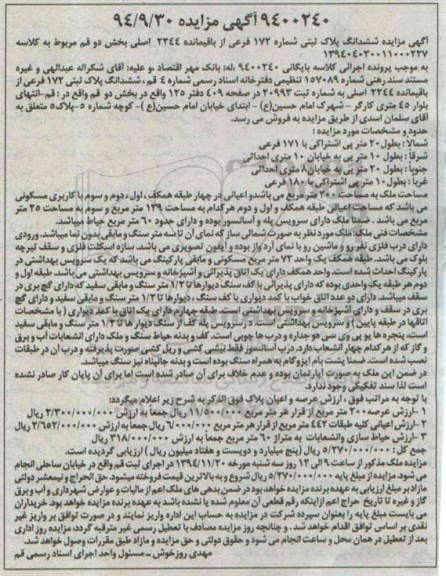 ۹۴۰۰۲۴۰ آگهی مزایده ۹۴/۹/۳۰
آگهی مزایده ششدانگ پلاک ثبتی شماره ۱۷۲ فرعی از باقیمانده ۲۲۴۴ اصلی بخش دو قم مربوط به کلاسه
۱۳۹۴۰۴۰۳۰۰۱۱۰۰۰۲۲۷
به موجب پرونده اجرائی کلاسه بایگانی ۹۴۰۰۲۴۰ له: بانک مهر اقتصاد ،و علیه: آقای شکراله عبدالهی و غیره
مستند سند رهنی شماره ۱۵۷۰۸۹ تنظیمی دفترخانه اسناد رسمی شماره ۴ قم، ششدانگ پلاک ثبتی ۱۷۲ فرعی از
باقیمانده ۲۲۴۴ اصلی به شماره ثبت ۲۰۹۹۳ در صفحه ۴۰۹ دفتر ۱۲۵ واقع در بخش دو قم واقع در : قم-انتهای
بلوار ۴۵ متری کارگر - شهرک امام حسین(ع) - ابتدای خیابان امام حسین(ع) - کوچه شماره ۵-پلاک۵ متعلق به
آقای سلمان اسدی از طریق مزایده به فروش می رسد.
حدود و مشخصات مورد مزایده :
شمالا : بطول ۲۰ متر پی اشتراکی با ۱۷۱ فرعی
شرقا : بطول ۱۰ متر پی به خیابان ۱۰ متری احداثی
جنوبا : بطول ۲۰ متر پی به خیابان ۸ متری احداثی
غربا : بطول ۱۰ متر پی اشتراکی با ۱۸۰ فرعی
مساحت ملک به مقدار ۲۰۰ متر مربع می باشد و اعیانی در چهار طبقه همکف ، اول ، دوم و سوم با کاربری مسکونی
می باشد که مساحت اعیانی طبقه همکف و اول و دوم هر کدام به مساحت ۱۳۹ متر مربع و سوم به مساحت ۲۵ متر
مربع می باشد . ضمنا ملک دارای سرویس پله و آسانسور بوده و دارای حدود ۶۰ متر مربع حیاط میباشد.
مشخصات فنی ملک: ملک مورد نظر به صورت شمالی ساز که نمای آن تا سه متر سنگ و مابقی بدون نما میباشد. ورودی
دارای درب فلزی نفر رو و ماشین رو با نمای آرد واز بوده و آیفون تصویری می باشد. سازه اسکلت فلزی و سقف تیرچه
بلوک می باشد. طبقه همکف یک واحد ۷۲ متر مربع مسکونی و مابقی پارکینگ می باشد که یک سرویس بهداشتی در
پارکینگ احداث شده است. واحد همکف دارای یک اتاق پذیرائی و آشپزخانه و سرویس بهداشتی می باشد. طبقه اول و
دوم هر طبقه یک واحدی بوده که دارای پذیرائی با کف سنگ دیوارها تا ۱/۲ متر سنگ و مابقی سفید که دارای گچ بری در
سقف میباشد. دارای دو عدد اتاق خواب با کمد دیواری با کف سنگ ، دیوارها تا ۱/۲ متر سنگ و مابقی سفید و دارای گچ
بری در سقف و دارای آشپزخانه و سرویس بهداشتی است. طبقه چهارم دارای یک اتاق با کمد دیواری ( با مشخصات
اتاقها در طبقه پایین ) و سرویس بهداشتی است. در سرویس پله کف از سنگ دیوارها تا ۱/۲ متر سنگ و مابقی سفید
است، پنجره ها یو پی وی سی دو جداره و درب ها چوبی است. کف و بدنه حیاط سنگ و ملک دارای انشعابات آب و برق
و گاز که از هر کدام چهار انشعاب دارد. درب آسانسور فقط تیشی کشی و ریل کشی صورت پذیرفته و درب آن در طبقات
نصب شده است. ضمنا پشت بام ایزوگام به همراه سنگ بوده است و بدنه جانپناه نیز سنگ میباشد.
در ضمن این ملک به صورت آپارتمان بوده و عدم خلاف برای آن صادر شده است اما برای آن پایان کار صادر نشده
است لذا سند تفکیکی وجود ندارد.
با توجه به مراتب فوق ، ارزش عرصه و اعیان پلاک فوق الذکر به شرح زیر اعلام میگردد:
۱ -ارزش عرصه ۲۰۰ متر مربع از قرار هر متر مربع ۱۱/۵۰۰/۰۰۰ ریال جمعا به ارزش ۲/۳۰۰/۰۰۰/۰۰۰ ریال
۲ -ارزش اعیانی کلیه طبقات ۴۴۲ متر مربع از قرار هر متر مربع ۶/۰۰۰/۰۰۰ ریال جمعاً به ارزش ۲/۶۵۲/۰۰۰/۰۰۰ ریال
۳ -ارزش حیاط سازی وانشعابات به متراژ ۶۰ متر مربع جمعاً به ارزش ۳۱۸/۰۰۰/۰۰۰ ریال
جمع کل: ۵/۲۷۰/۰۰۰/۰۰۰ ریال (پنج میلیارد و دویست و هفتاد میلیون ریال ) ارزیابی گردیده است.
مزایده ملک مذکور از ساعت ۹ الی ۱۲ روز سه شنبه مورخه ۱۳۹۴/۱۱/۲۰ در اجرای ثبت قم واقع در خیابان ساحلی انجام
می شود. مزایده از مبلغ پایه ۵/۲۷۰/۰۰۰/۰۰۰ ریال شروع و به بالاترین قیمت فروخته میشود. حق الحراج و نیمعشر دولتی
مازاد بر مبلغ ارزیابی به عهده برنده مزایده خواهد بود در ضمن بدهی های ملک اعم از مالیات و عوارض شهرداری و آب و برق
گاز و غیره تا تاریخ حراج اعم ازاینکه رقم قطعی آن معلوم شده یا نشده باشد به عهده برنده مزایده خواهد بود. خریداران
می بایست مبلغ پایه را بعنوان سپرده شرکت در مزایده به حساب این اداره واریز نمایند و در صورت توافق بر واریز غیر
نقدی بر اساس توافق اقدام خواهد شد . و چنانچه روز مزایده مصادف با تعطیل رسمی غیر مترقبه گردد، مزایده روز اداری
بعد از تعطیل در همان محل و ساعت انجام می شود و حقوق دولتی و حق مزایده و مازاد طبق مقررات وصول خواهد شد.
مهدی روزخوش _ مسئول واحد اجرای اسناد رسمی قم